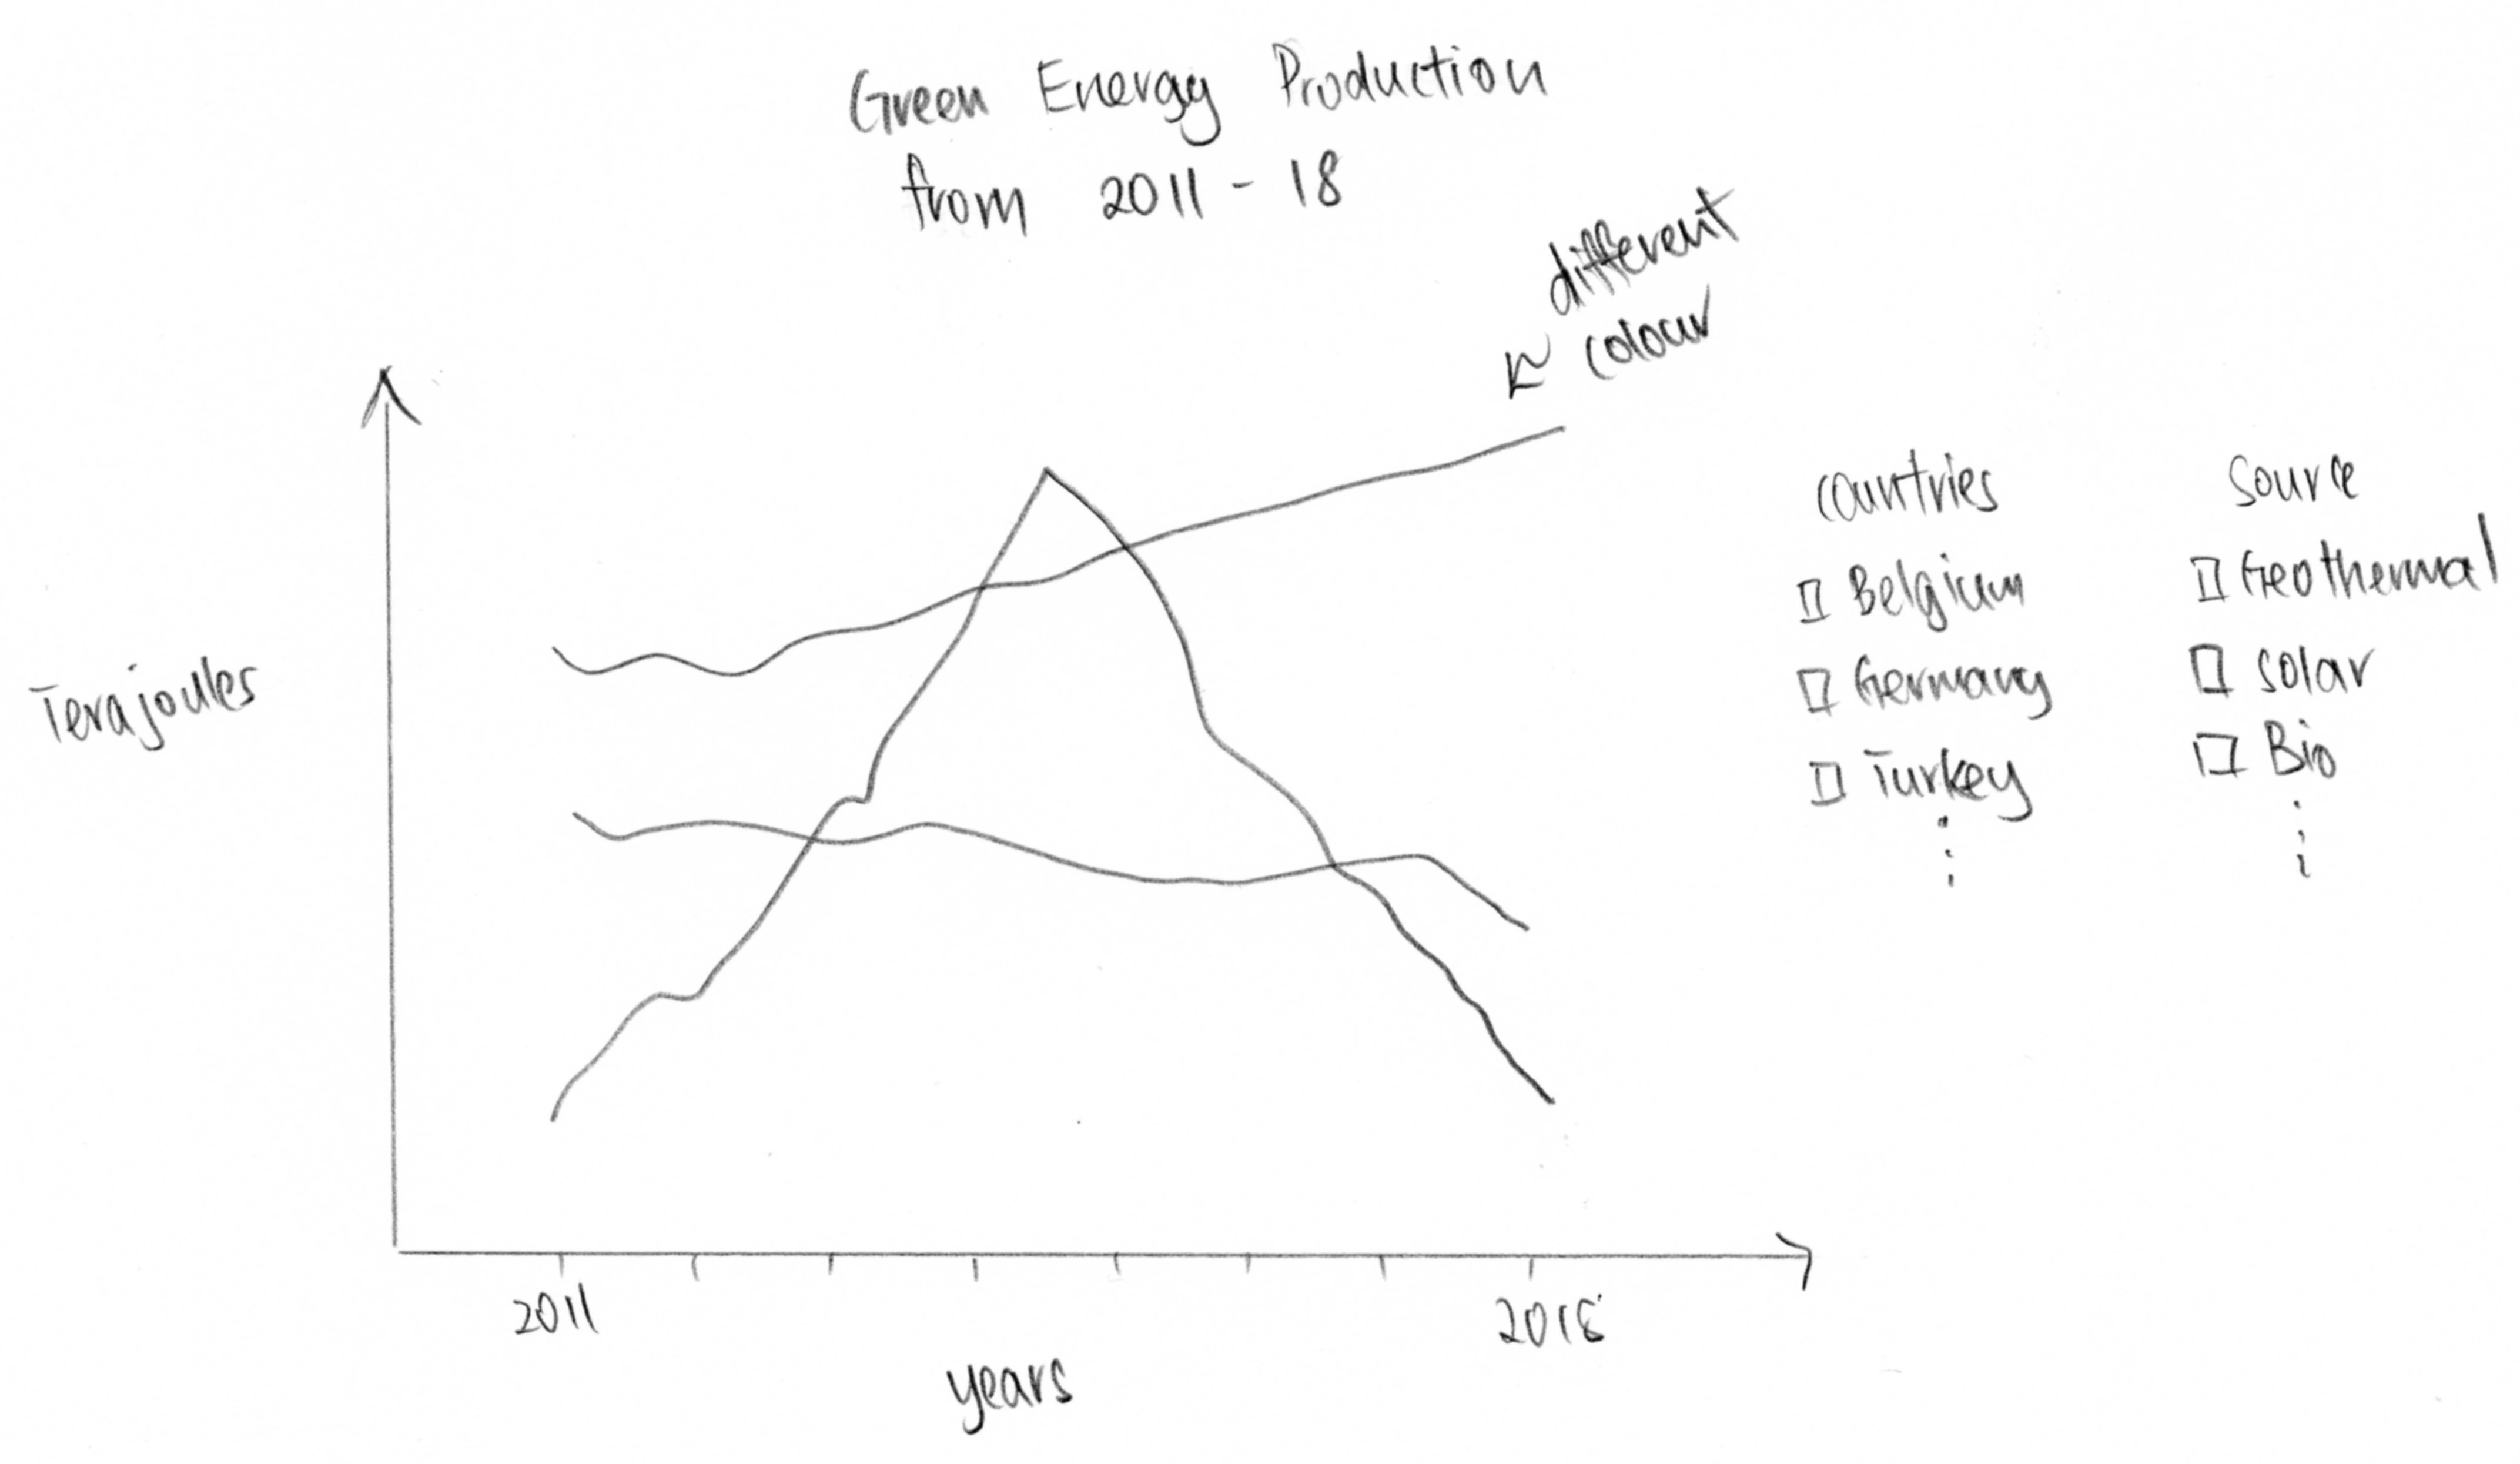 Green Energy Production
from 2011 - 18
different
colour
Terajoules
countries
Belgium
Germany
Turkey
Source
Geothermal
solar
Bio
2011
2018
years